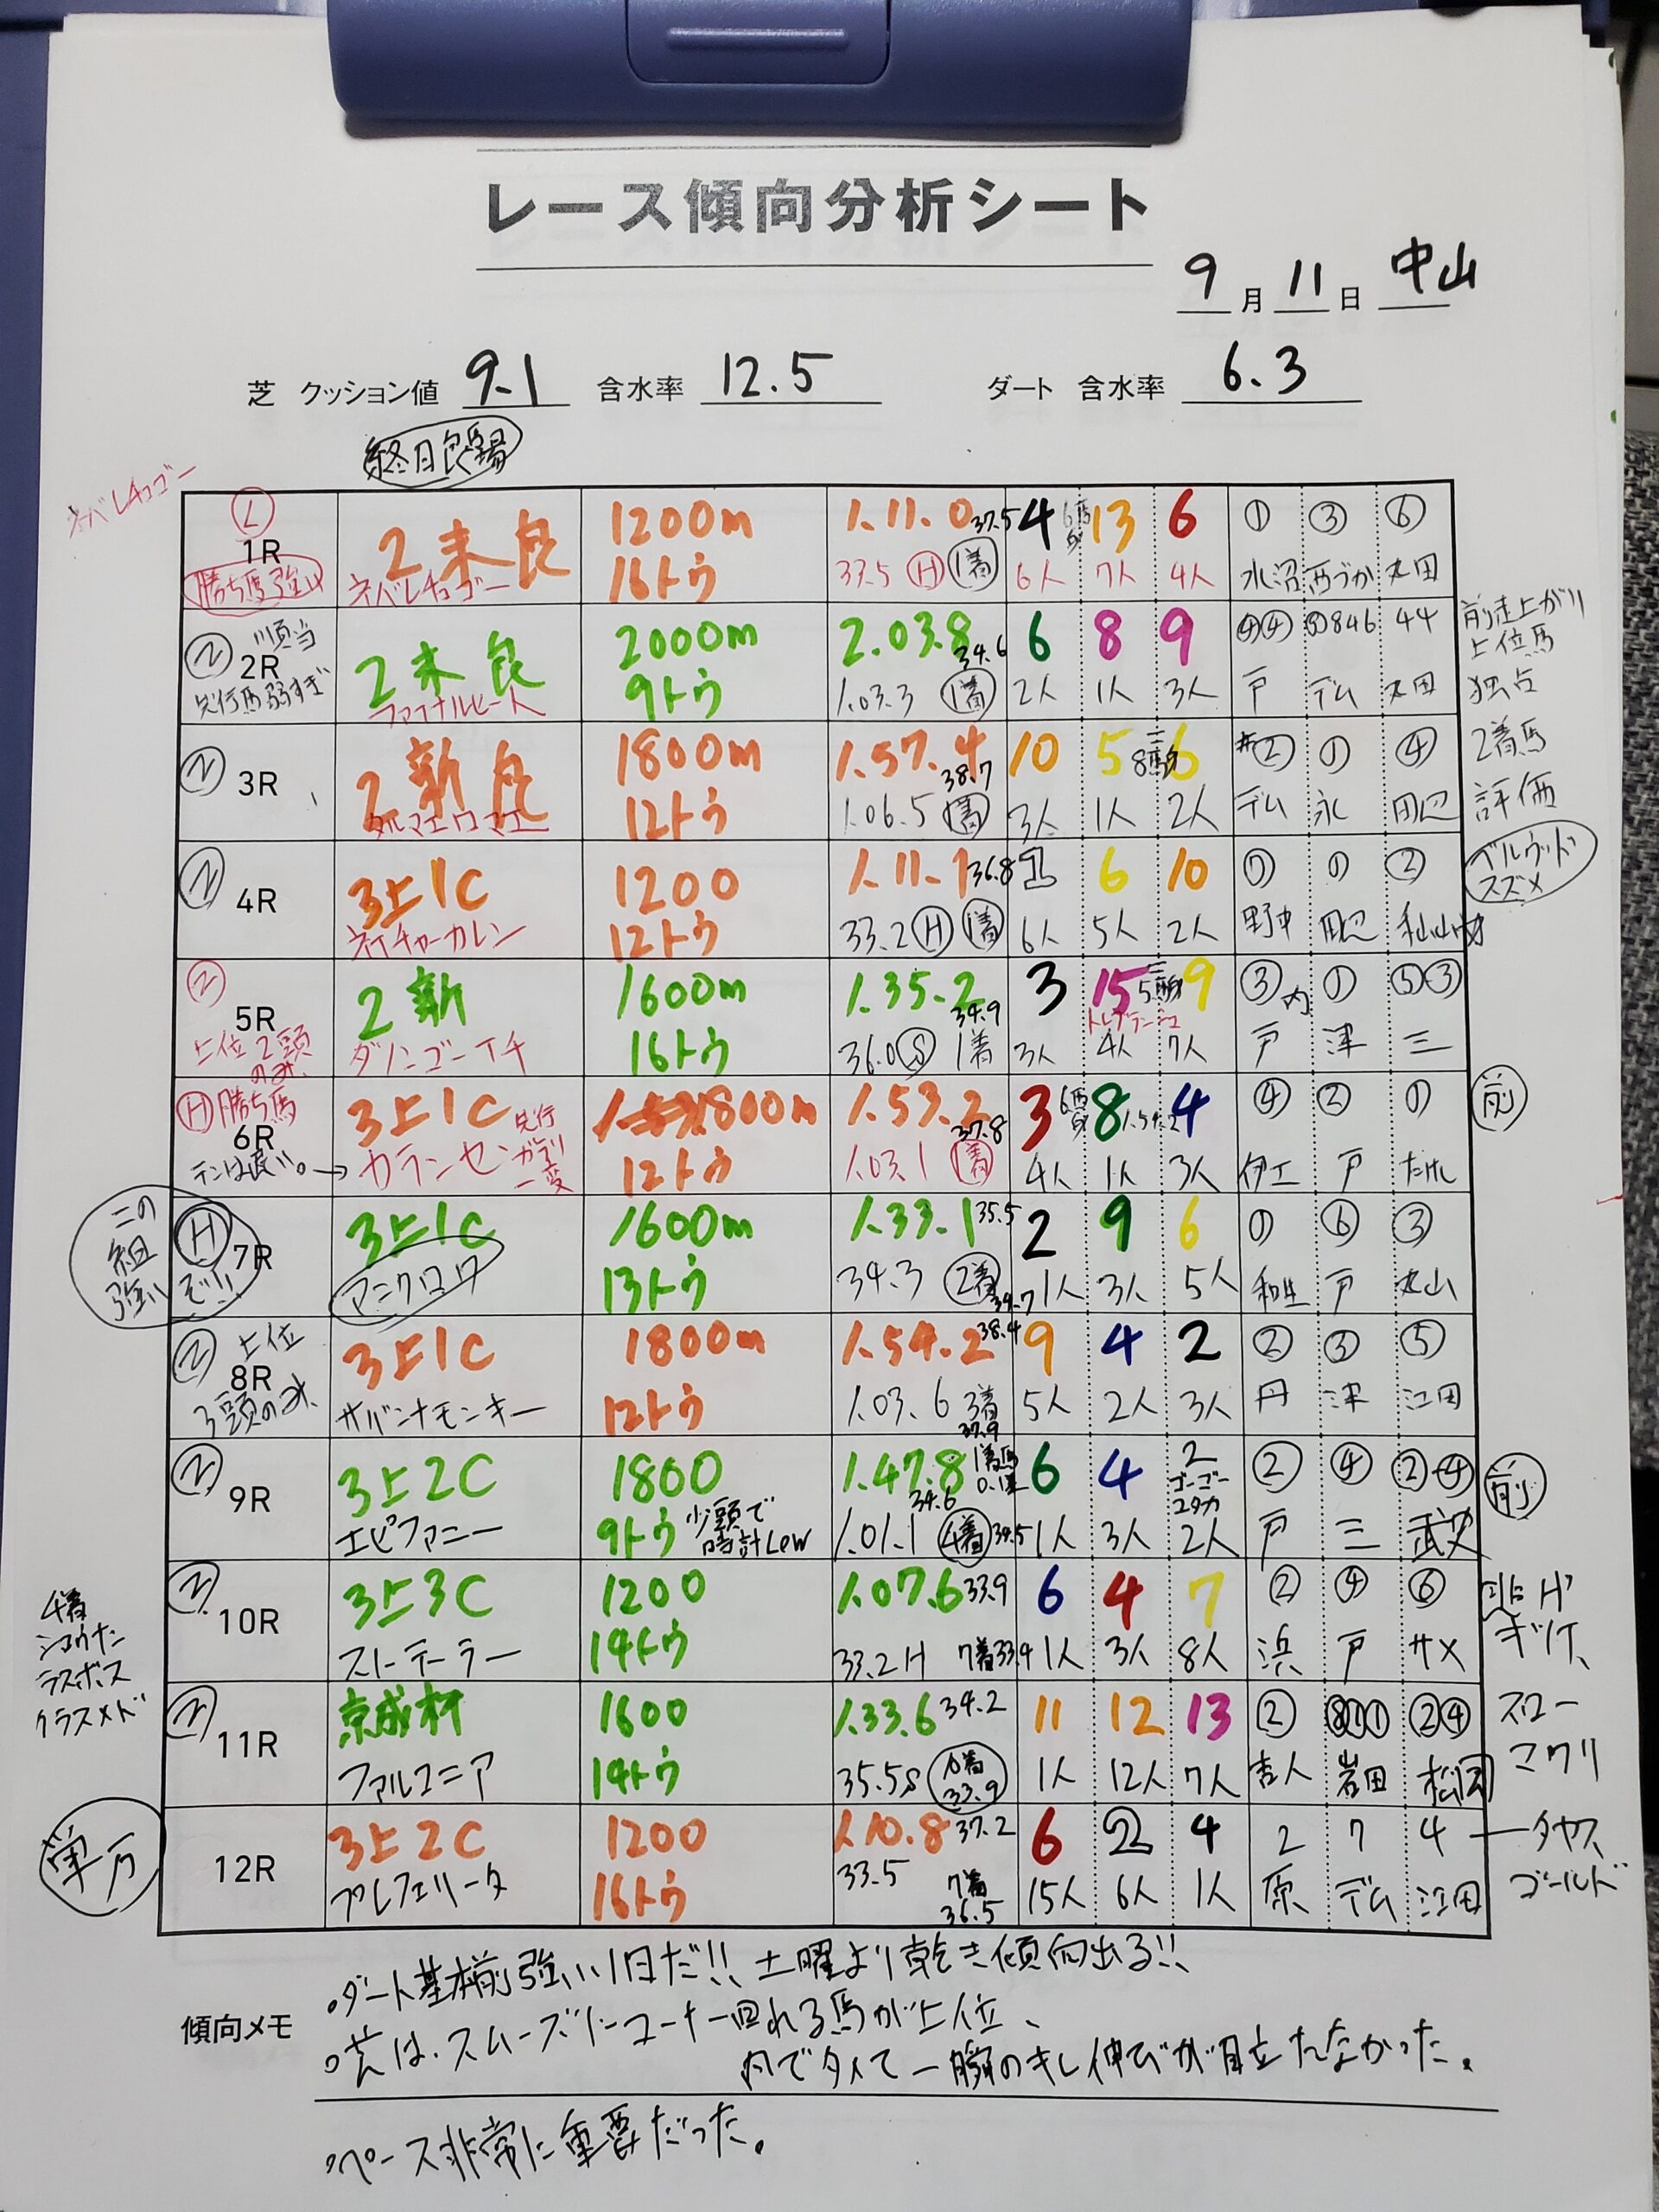 レース傾向分析シート
9月11日 中山
芝 クッション値 9.1 含水率 12.5 ダート 含水率 6.3
終日良馬場
ネバレチョゴー
L 1R 2未良 1200m 1.11.0 37.5 4 13 6 ① ③ ⑥
勝ち馬強い ネバレチョゴー 16トウ 33.5 H 1着 6人 7人 4人 水沼 西づか 丸田
順当
2R 2未良 2000m 2.03.8 34.6 6 8 9 44
先行馬弱すぎ ファイナルヒート 9トウ 1.03.3 1着 2人 1人 3人 戸 デム 丸田
前走上がり
上位馬
独占
2着馬
評価
3R 2新良 1800m 1.57.4 38.7 10 5 8馬身 6 ② ① ④
タルマエロマエ 12トウ 1.06.5 1着 3人 1人 2人 デム 永 田辺
4R 3上1C 1200 1.11.1 36.8 1 6 10 ① ① ②
ネイチャーカレン 12トウ 33.2 H 1着 6人 5人 2人 野中 田辺
ベルウッド
スズメ
5R 2新 1600m 1.35.2 34.9 3 15 5馬身 9 ③内 ① ⑤③
上位2頭のみ、 ダノンゴーイチ 16トウ 36.0 S 1着 3人 4人 7人 戸 津 三
H 勝ち馬
6R 3上1C 1800m 1.53.2 37.8 3 8 1.54.2 4 ④ ② ①
テンは遅い。→ カランセ 先行ガラリ一変 12トウ 1.03.1 1着 4人 1人 3人 伊工 戸 たけし
前
この組強いぞ!!
H 7R 3上1C 1600m 1.33.1 35.5 2 9 6 ① ⑥ ③
アニクロワ 13トウ 34.3 2着 34.7 1人 3人 5人 和生 戸 丸山
上位
8R 3上1C 1800m 1.54.2 38.4 9 4 2 ② ③ ⑤
3頭のみ、 サバンナモンキー 12トウ 1.03.6 3着 37.9 5人 2人 3人 丹 津 江田
9R 3上2C 1800 1.47.8 34.6 1着馬 0.1差 6 4 2 ② ④ ②④
エピファニー 9トウ 少頭で時計Low 1.01.1 4着 34.5 1人 3人 ゴーゴーユタカ 2人 戸 三 武史
前
10R 3上3C 1200 1.07.6 33.9 6 4 7 ② ④ ⑥
ストーテーラー 14トウ 33.2 H 7着 33.4 1人 3人 8人 浜 戸 サメ
4着
ショウナン
ラスボス
クラスメド
11R 京成杯 1600 1.33.6 34.2 11 12 13 ② ②④
ファルコニア 14トウ 35.5 S 33.9 1人 12人 7人 吉人 岩田 松岡
スロー
マクリ
単万
12R 3上2C 1200 1.10.8 37.2 6 2 4 2 7 4 ータヤス
プレフェリータ 16トウ 33.5 7着 36.5 15人 6人 1人 原 デム 江田 ゴールド
傾向メモ
・ダート基本前強い1日だ!! 土曜より乾き傾向出る!!
・芝は、スムーズにコーナー回れる馬が上位、
内でタメて一瞬のキレ伸びが目立たなかった。
・ペース非常に重要だった。